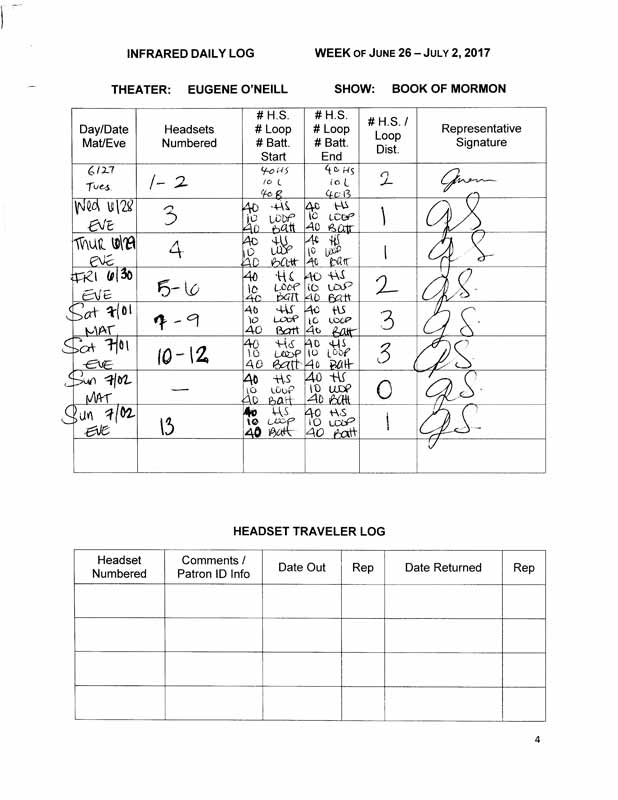 INFRARED DAILY LOG WEEK OF JUNE 26 – JULY 2, 2017
THEATER: EUGENE O'NEILL SHOW: BOOK OF MORMON
Day/Date Mat/Eve Headsets Numbered # H.S. # Loop # Batt. Start # H.S. # Loop # Batt. End # H.S. / Loop Dist. Representative Signature
6/27 Tues 1-2 40 HS 10 L 40 B 40 HS 10 L 40 B 2
Wed 6/28 EVE 3 40 HS 10 LOOP 40 Batt 40 HS 10 LOOP 40 Batt 1 GS.
THUR 6/29 EVE 4 40 HS 10 LOOP 40 Batt 40 HS 10 LOOP 40 Batt 1 GS.
FRI 6/30 EVE 5-6 40 HS 10 LOOP 40 Batt 40 HS 10 LOOP 40 Batt 2 GS.
Sat 7/01 MAT 7-9 40 HS 10 LOOP 40 Batt 40 HS 10 LOOP 40 Batt 3 GS.
Sat 7/01 EVE 10-12 40 HS 10 LOOP 40 Batt 40 HS 10 LOOP 40 Batt 3 GS.
Sun 7/02 MAT — 40 HS 10 LOOP 40 Batt 40 HS 10 LOOP 40 Batt 0 GS.
Sun 7/02 EVE 13 40 HS 10 LOOP 40 Batt 40 HS 10 LOOP 40 Batt 1 GS.
HEADSET TRAVELER LOG
Headset Numbered Comments / Patron ID Info Date Out Rep Date Returned Rep
4